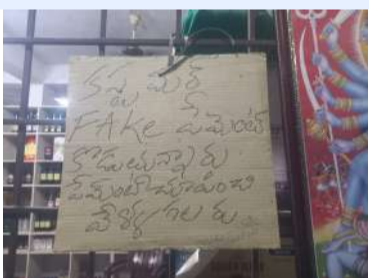 కస్టమర్
FAKe పేమెంట్
కొడుతున్నారు
పేమెంట్ చూపించి
వెళ్ళగలరు